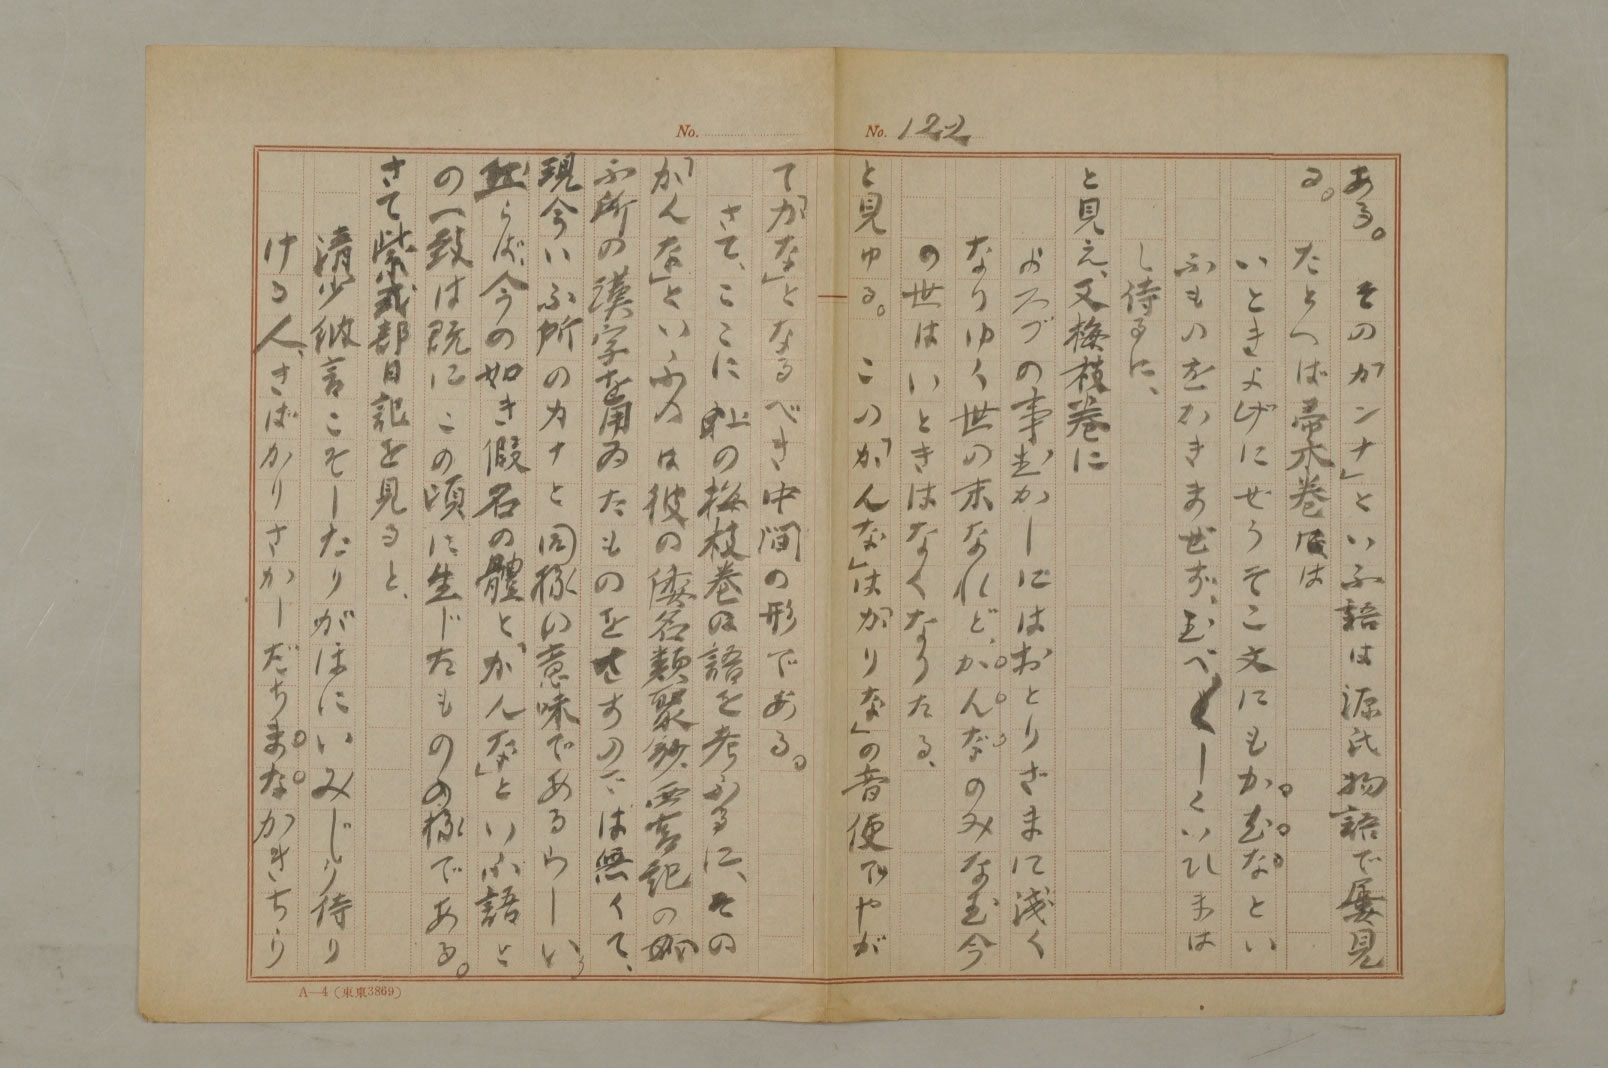 No.
No. 122
ある。そのカンナ」といふ語は源氏物語で屡見
る。たとへば帚木巻には
いときよげにせうそこ文にもかむなとい
ふものをかきまぜず、むべ〱しくいひまは
し侍るに、
と見え、又梅枝巻に
よろづの事むかしにはおとりざまに浅く
なりゆく世の末なれど、かんなのみなむ今
の世はいときはなくなりたる、
と見ゆる。この「かんな」は「かりな」の音便でやが
て「かな」となるべき中間の形である。
さて、ここに上の梅枝巻の語を考ふるに、その
「かんな」といふのは彼の倭名類聚鈔、西宮記の
ふ所の漢字を用ゐたものをさすのでは無くて、
現今いふ所のカナと同様い意味であるらしい。
然らば、今の如き假名の體と、「かんな」といふ語と
の一致は既にこの頃に生じたものの様である。
さて紫式部日記を見ると、
清少納言こそしたりがほにいみじう侍り
ける人、さばかりさかしだちまなかきちら
A—4（東東3869）